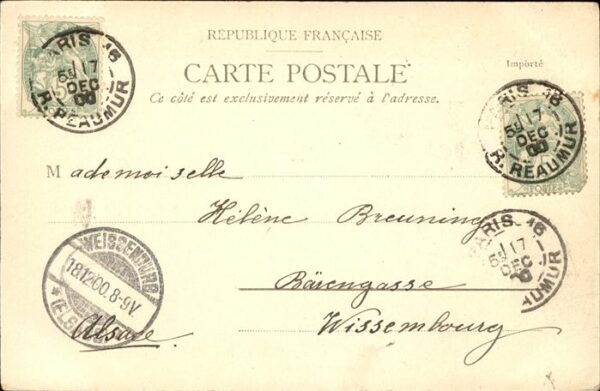 RÉPUBLIQUE FRANÇAISE
CARTE POSTALE
Importé
Ce côté est exclusivement réservé à l'adresse.
PARIS 16
5E 17
DEC
00
R. REAUMUR
PARIS 16
5E 17
DEC
00
R. REAUMUR
Mademoiselle
Hélène Breuning
PARIS 16
5E 17
DEC
REAUMUR
Bärengasse
Wissembourg
Alsace
WEISSENBURG
18.12.00.8-9V.